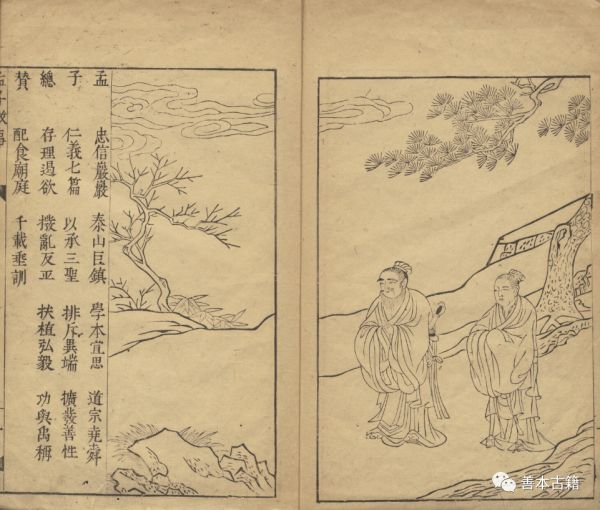 孟 忠信巖巖 泰山巨鎮 學本宣思 道宗堯舜
子 仁義七篇 以承三聖 排斥異端 擴發善性
總 存理遏欲 撥亂反正 扶植弘毅 功與禹稱
贊 配食廟庭 千載垂訓
善本古籍